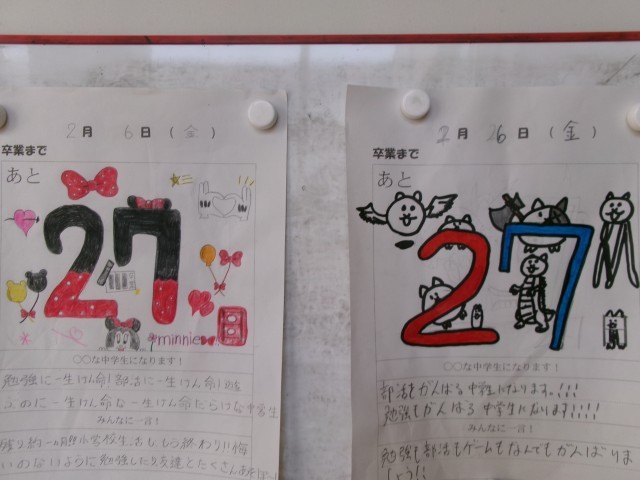 2月 6日(金)
卒業まで
あと
27
#minnie
日
○○な中学生になります!
勉強に一生けん命!部活に一生けん命!
うのに一生けん命な一生けん命だらけな中学生
みんなに一言!
残り約一ヵ月!小学校生活もしもう終わり!!悔
いのないように勉強したり友達とたくさんあそぼー!
2月 26日(金)
卒業まで
あと
27
○○な中学生になります!
部活をがんばる中学生になります。!!!
勉強もがんばる中学生になります!!!!
みんなに一言!
勉強も部活もゲームもなんでもがんばりま
しょう!!